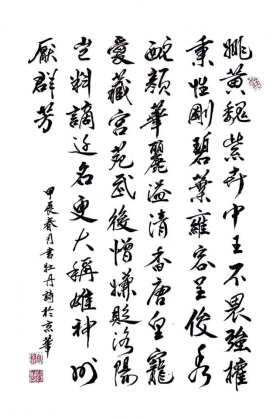 姚黄魏紫卉中王不畏強權
秉性剛碧葉雍容呈俊秀
酡顔華麗溢清香唐皇寵
愛藏宮苑武後憎嫌貶洛陽
豈料謫迁名更大稱雄神州
厭群芳
甲辰春月書牡丹詩於京華